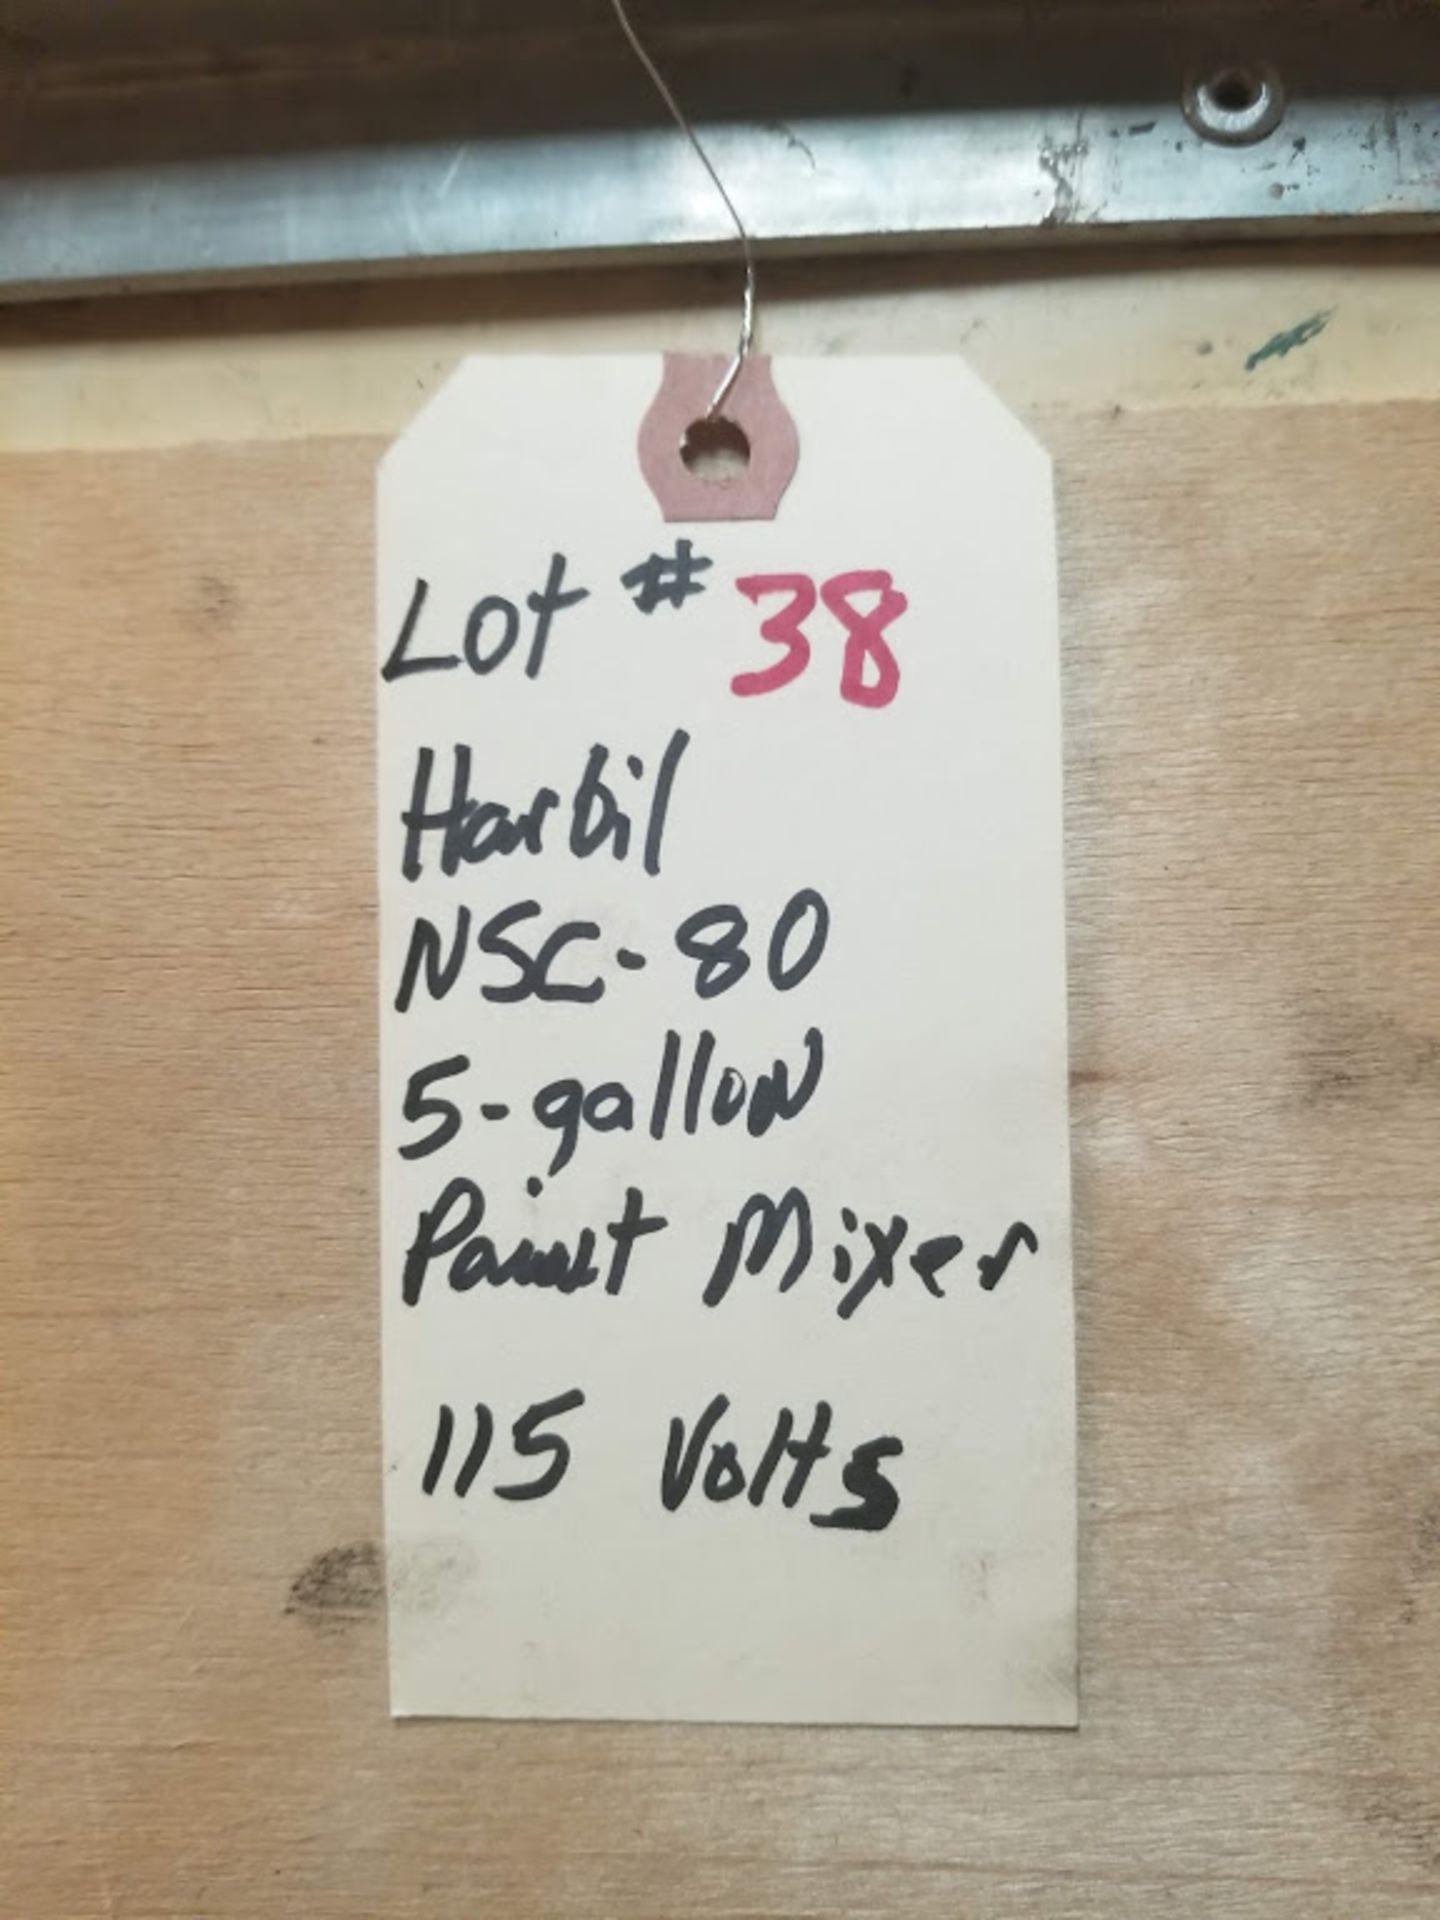 Lot # 38
Harbil
NSC-80
5-gallon
Paint Mixer
115 Volts